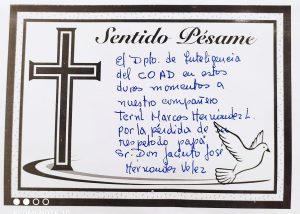 Sentido Pésame
El Dpto. de Inteligencia
del COAD en estos
duros momentos a
nuestro compañero
Tcrnl Marcos Hernández L.
por la pérdida de su
respetado papá,
Sr. Don Jacinto José
Hernández Vélez